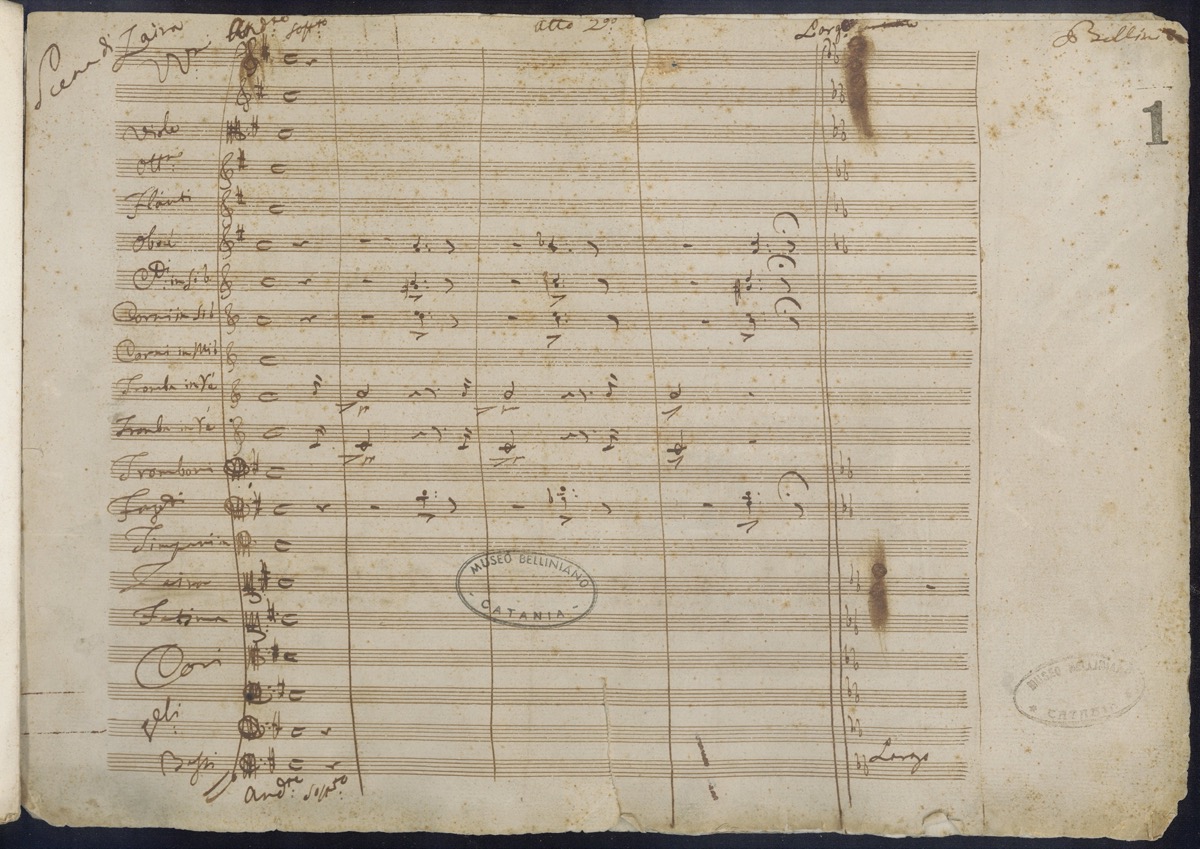 Scena di Zaira
And.te sost.to
Atto 2do
Largo
Bellini
1
VVni
Viole
Ott.no
Flauti
Oboè
Cl.ti in si b
Corni in si b
Corni in Mi b
Tromba in Ré
Tromba in Ré
Tromboni
Fag.ti
Timpani
Zaira
Fatima
Cori
Vlli
Bassi
And.te sost.to
Largo
MUSEO BELLINIANO
- CATANIA -
MUSEO BELLINIANO
CATANIA